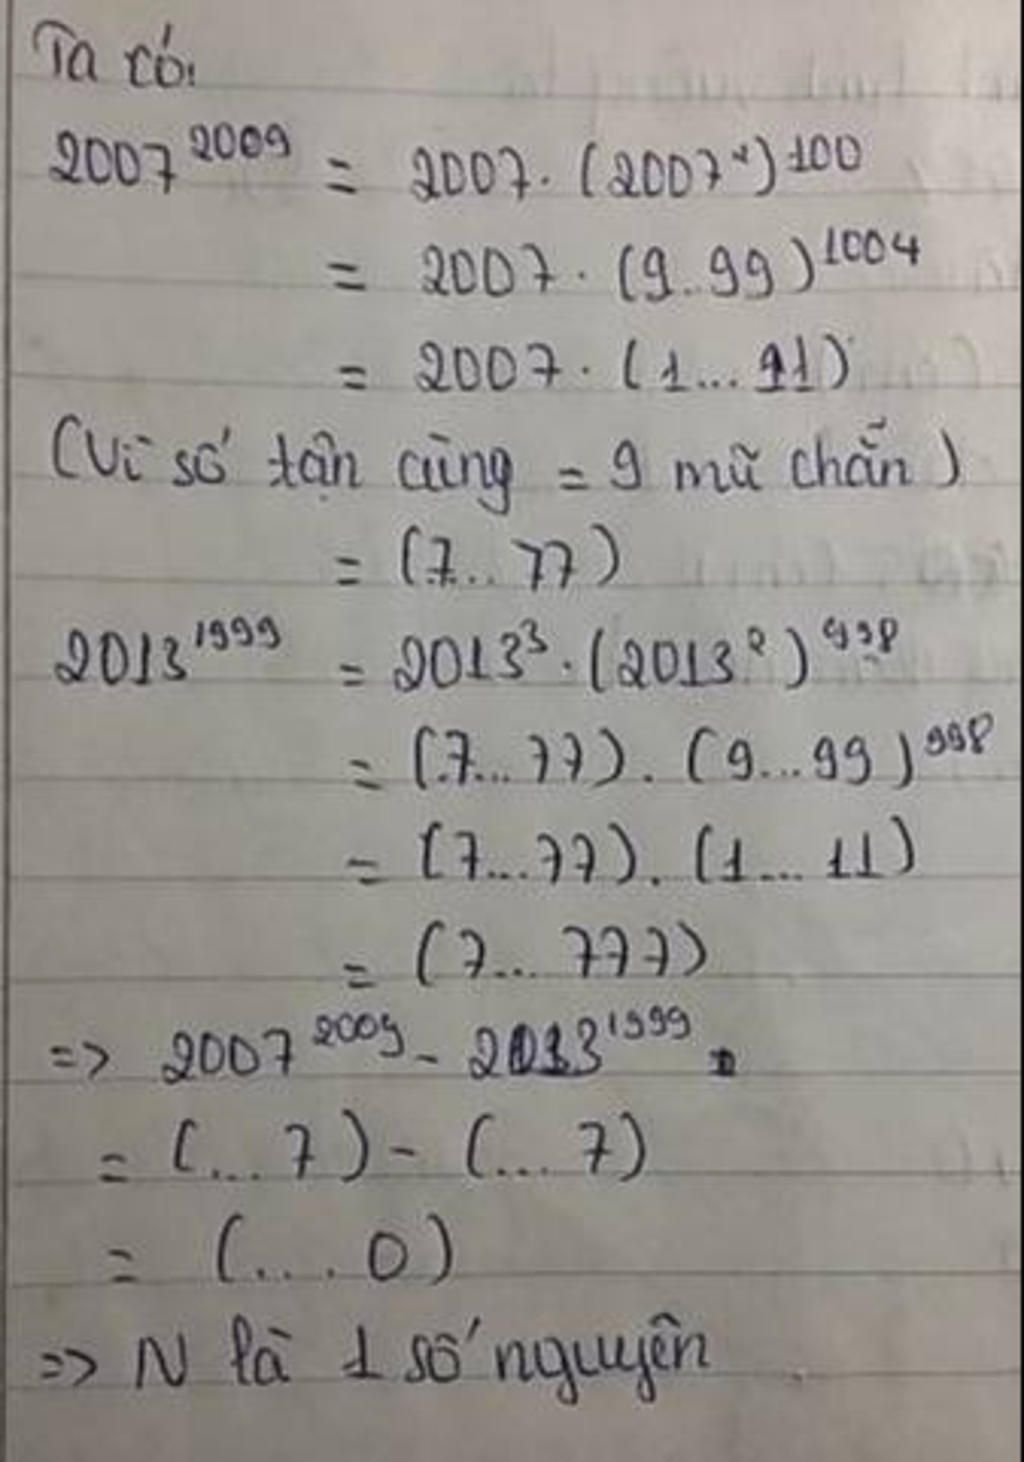 Ta có:
2007^2009 = 2007. (2007²)^100
= 2007. (9..99)^1004
= 2007. (1...11)
(Vì số tận cùng = 9 mũ chẵn)
= (7...77)
2013^1999 = 2013³. (2013²)^998
= (7...77). (9...99)^998
= (7...77). (1...11)
= (7...777)
=> 2007^2009 - 2013^1999
= (...7) - (...7)
= (....0)
=> N là 1 số nguyên